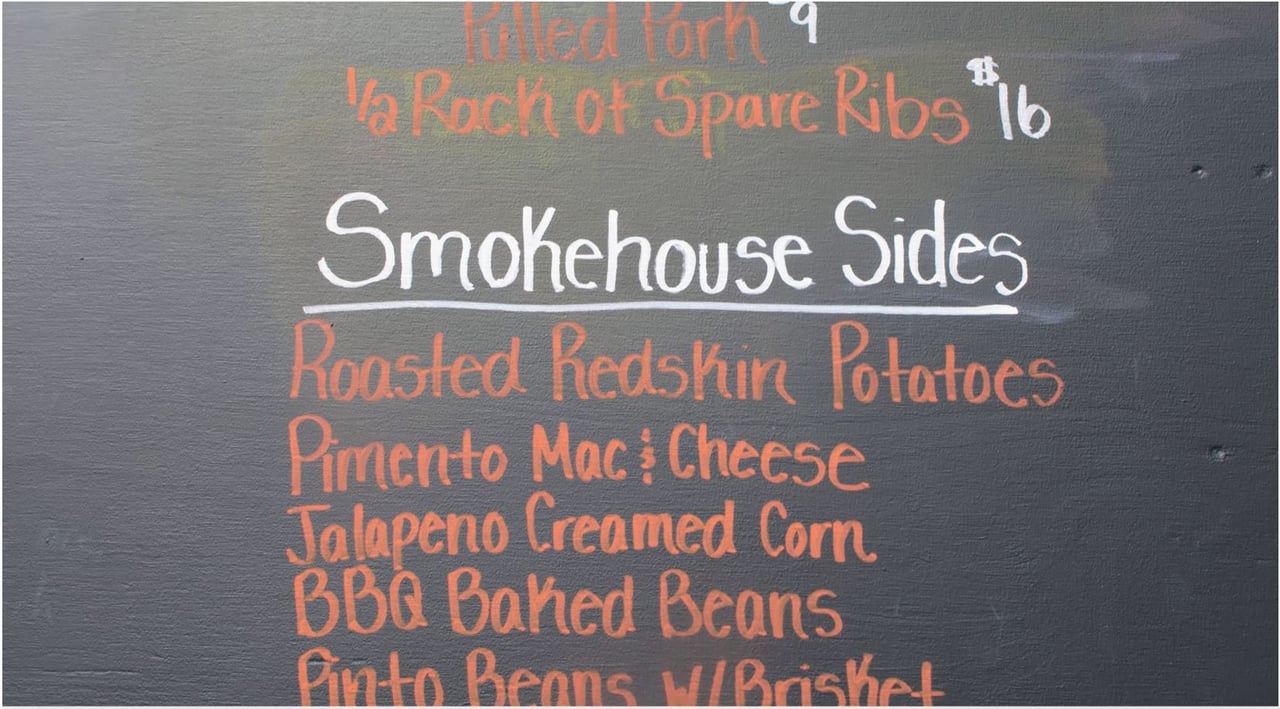 Pulled Pork $9
1/2 Rack of Spare Ribs $16
Smokehouse Sides
Roasted Redskin Potatoes
Pimento Mac & Cheese
Jalapeno Creamed Corn
BBQ Baked Beans
Pinto Beans w/ Brisket